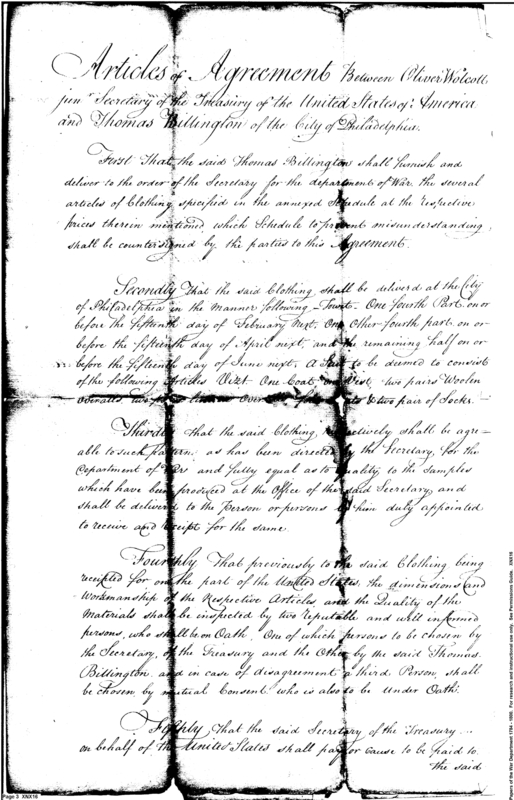 Articles of Agreement Between Oliver Wolcott
junr Secretary of the Treasury of the United States of America
and Thomas Billington of the City of Philadelphia.
First That the said Thomas Billington shall furnish and
deliver to the order of the Secretary for the department of War the several
articles of Clothing specified in the annexed Schedule at the respective
prices therein mentioned which Schedule to prevent misunderstanding
shall be countersigned by the parties to this Agreement.
Secondly That the said Clothing shall be deliverd at the City
of Philadelphia in the manner following - Towit. One fourth Part on or
before the fifteenth day of February next. One Other fourth part on or
before the fifteenth day of April next, and the remaining half on or
before the fifteenth day of June next. A Suit to be deemed to consist
of the following Articles Vizt. One Coat, one Vest, two pairs Woolen
Overalls two & two pair of Socks.
Thirdly that the said Clothing, respectively shall be agre-
able to such pattern, as has been directed by the Secretary, for the
Department of War and fully equal as to Quality, to the Samples
which have been produced at the Office of the said Secretary, and
shall be delivered to the Person or persons by him duly appointed
to receive and receipt for the same.
Fourthly That previously to the said Clothing being
receipted for on the part of the United States, the dimensions and
Workmanship of the Respective Articles and the Quality of the
Materials shall be inspected by two reputable and well informed
persons, who shall be on Oath, One of which persons to be chosen by
the Secretary, of the Treasury and the Other by the said Thomas
Billington, and in case of disagreement a third Person, shall
be chosen by mutual Consent who is also to be Under Oath.
Fifthly That the said Secretary of the Treasury
on behalf of the United States shall pay or cause to be paid to
the said
Page 3 XNX16
Papers of the War Department 1784 - 1800. For research and instructional use only. See Permissions Guide. XNX16